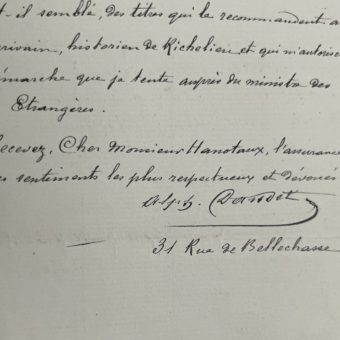 t-il semblé, des titres qui la recommandent a
crivain, historien de Richelieu et qui m'autorise
émarche que je tente auprès du ministre des
Etrangères.
ecevez, Cher Monsieur Hanotaux, l'assurance
es sentiments les plus respectueux et dévoués
Alph. Daudet
31 Rue de Bellechasse